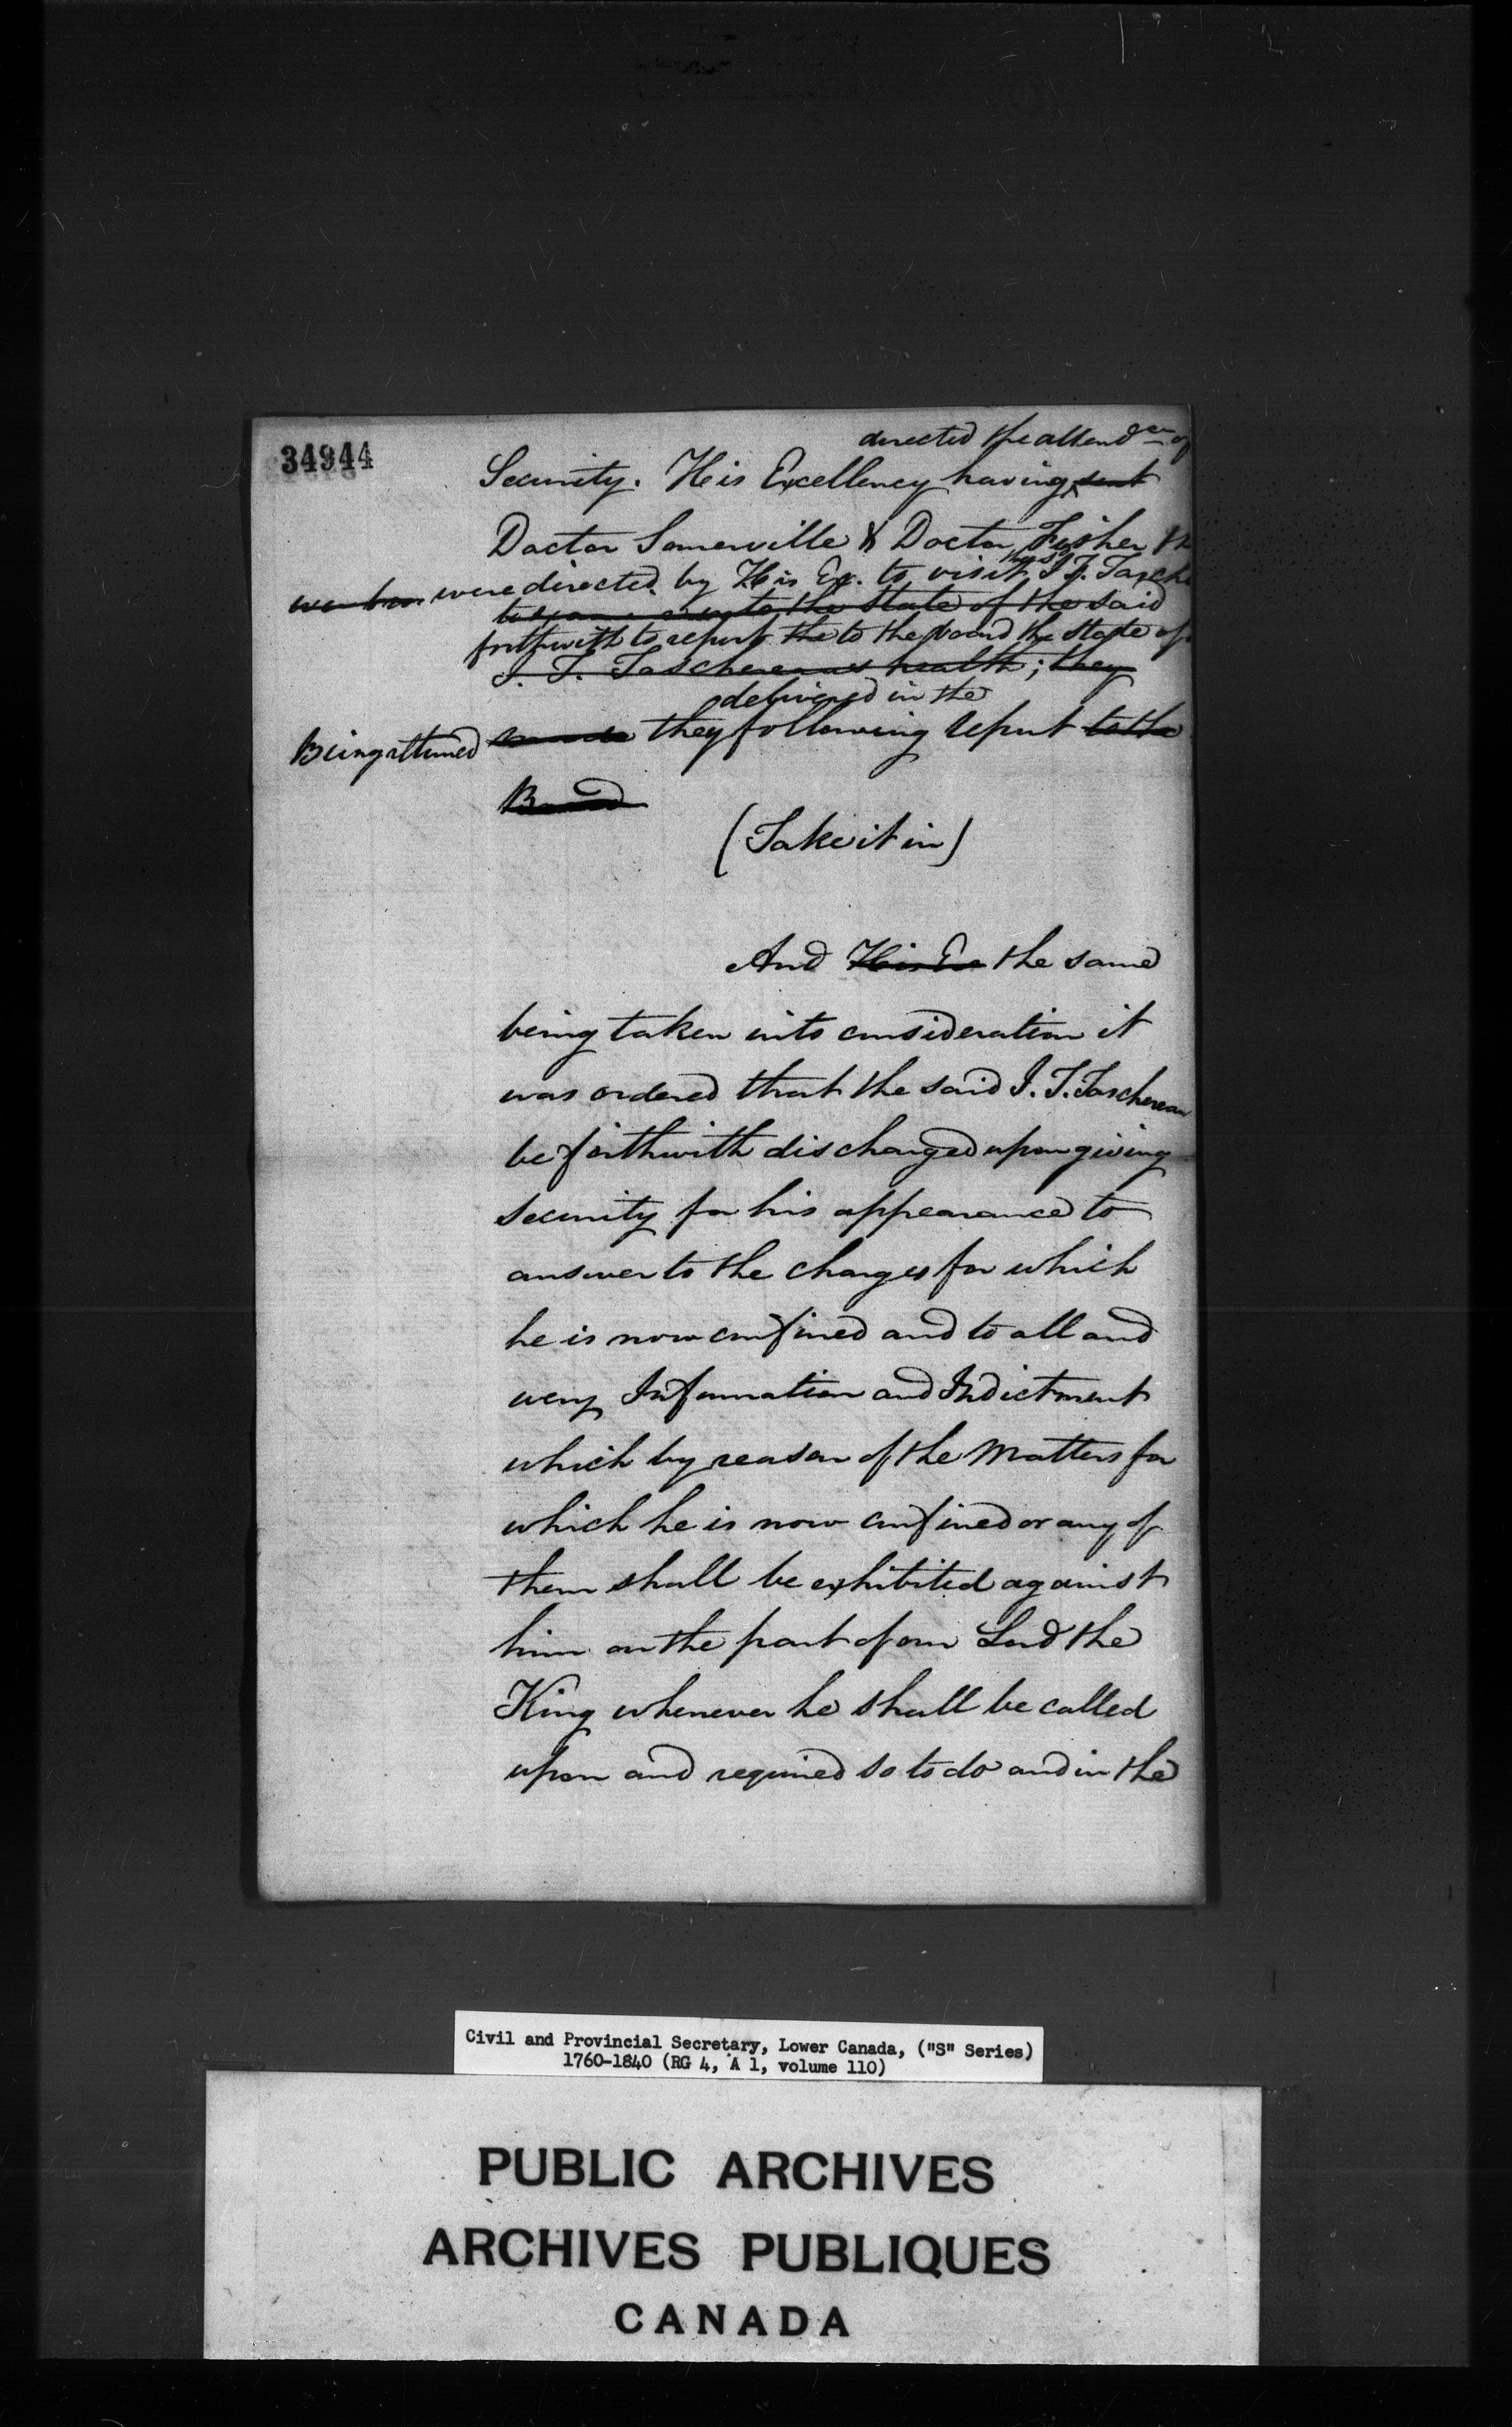 34944
directed the attendce of
Security. His Excellency having sent
Doctor Somerville & Doctor Fisher th
were directed by His Ex. to visit the sd J. T. Tasche
to the state of the said
forthwith to report the to the board the state of
J. T. Taschereau's health; they
delivered in the
Being returned made they following report to the
Board
(Take it in)
And His Ex the same
being taken into consideration it
was ordered that the said J. T. Taschereau
be forthwith discharged upon giving
security for his appearance to
answer to the charges for which
he is now confined and to all and
every Information and Indictment
which by reason of the Matters for
which he is now confined or any of
them shall be exhibited against
him on the part of our Lord the
King whenever he shall be called
upon and required so to do and in the
Civil and Provincial Secretary, Lower Canada, ("S" Series)
1760-1840 (RG 4, A 1, volume 110)
PUBLIC ARCHIVES
ARCHIVES PUBLIQUES
CANADA